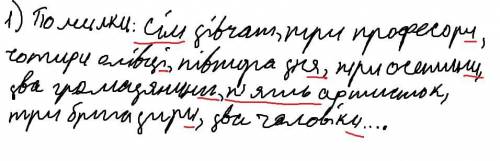 1) Помилки: сім дівчат, три професори,
чотири олівці, півтора дня, три осетини,
два громадянини, п'ять артисток,
три бригадири, два чоловіки....